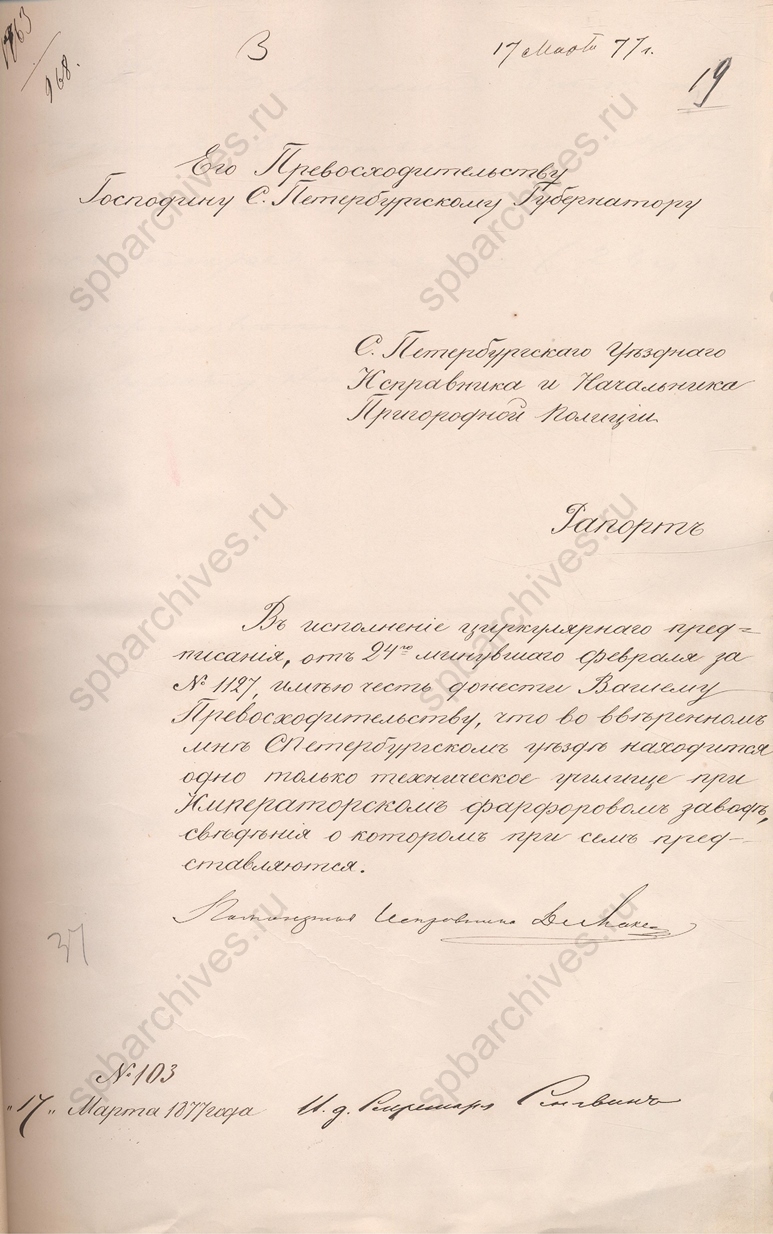 1763
968.
3
17 Марта 77 г.
19
Его Превосходительству
Господину С. Петербургскому Губернатору
С. Петербургскаго Уѣзднаго
Исправника и Начальника
Пригородной Полиціи.
Рапортъ
Въ исполненіе циркулярнаго пред=
писанія, отъ 24го минувшаго февраля за
№ 1127, имѣю честь донести Вашему
Превосходительству, что во ввѣренномъ
мнѣ СПетербургскомъ уѣздѣ находится
одно только техническое училище при
Императорскомъ фарфоровомъ заводѣ,
свѣдѣнія о которомъ при семъ пред=
ставляются.
Исправника
37
№ 103
"17" Марта 1877 года И. д. Секретаря
spbarchives.ru
spbarchives.ru
spbarchives.ru
spbarchives.ru
spbarchives.ru
spbarchives.ru